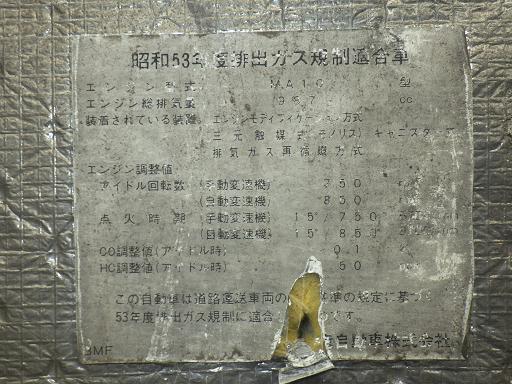 昭和53年度排出ガス規制適合車
エンジン型式 MA10 型
エンジン総排気量 987 cc
装着されている装置 エンジンモディフィケーション方式
三元触媒 キャニスター
排気ガス再循環方式
エンジン調整値
アイドル回転数 (手動変速機) 750
(自動変速機) 830
点火時期 (手動変速機) 15°/750
(自動変速機) 15°/850
CO調整値(アイドル時) 0.1
HC調整値(アイドル時) 50
この自動車は道路運送車両の 基準の規定に基づ
53年度排出ガス規制に適合 です。
自動車株式会社